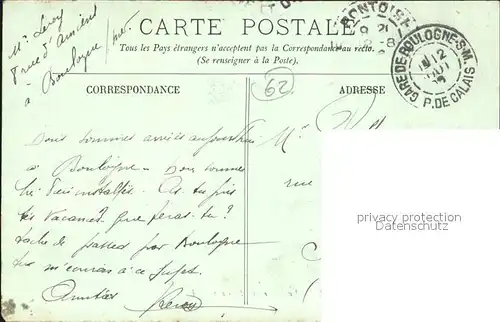 CARTE POSTALE
Tous les Pays étrangers n'acceptent pas la Correspondance au recto.
(Se renseigner à la Poste).
Mr Leroy
rue d'Amiens
à Boulogne s/mer
PONTOISE
GARE DE BOULOGNE-S-M.
12
P. DE CALAIS
CORRESPONDANCE
62
ADRESSE
Nous sommes arrivés aujourd'hui
à Boulogne - Nous sommes
très bien installés. As tu pris
tes vacances? que feras tu?
tache de passer par Boulogne
à ce sujet.
Amitiés
Leroy
Mr
rue
privacy protection
Datenschutz